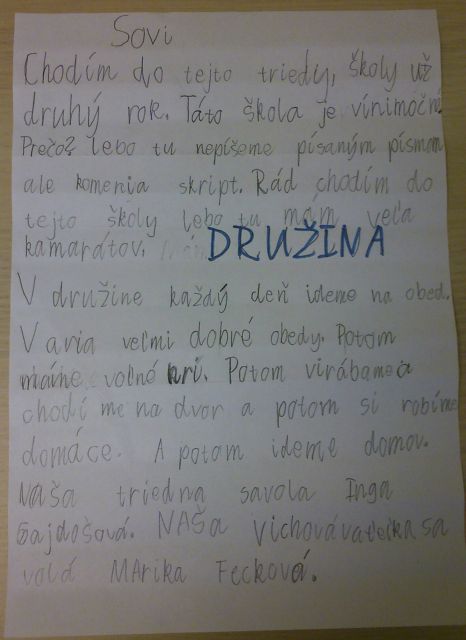 Sovi
Chodím do tejto triedy, školy už
druhý rok. Táto škola je vínimočné
Prečo? lebo tu nepíšeme písaným písmom
ale komenia skript. Rád chodím do
tejto školy lebo tu mám veľa
kamarátov.
DRUŽINA
V družine každý deň ideme na obed.
Varia veľmi dobré obedy. Potom
máme voľné hri. Potom virábame a
chodí me na dvor a potom si robíme
domáce. A potom ideme domov.
Naša triedna savola Inga
Gajdošová. NAŠA Vichovávateľka sa
volá MArika Fecková.